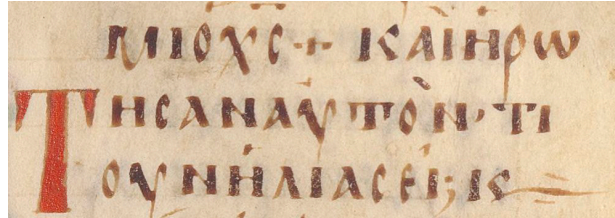 ΜΙΟΧϹ + ΚΑῚΗΡΩ
ΤΗϹΑΝΑΥΤῸΝ· ΤΙ
ΟΥΝΗΛΙΑϹΕΙ; Κϛ